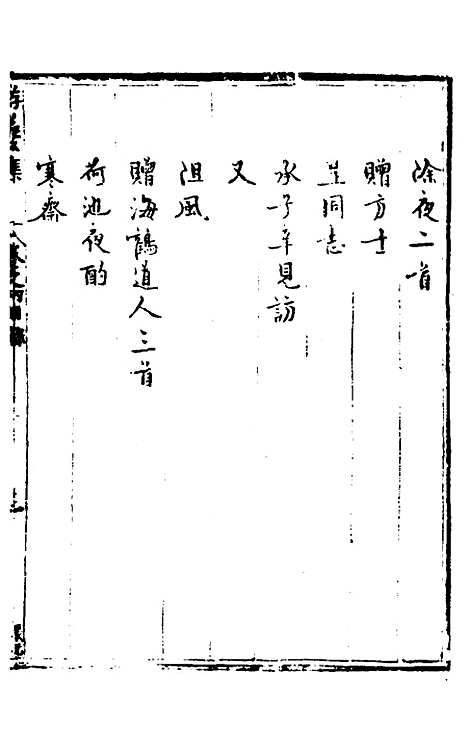 除夜二首
贈方士
同志
承子辛見訪
又
阻風
贈海鶴道人三首
荷池夜酌
寒齋